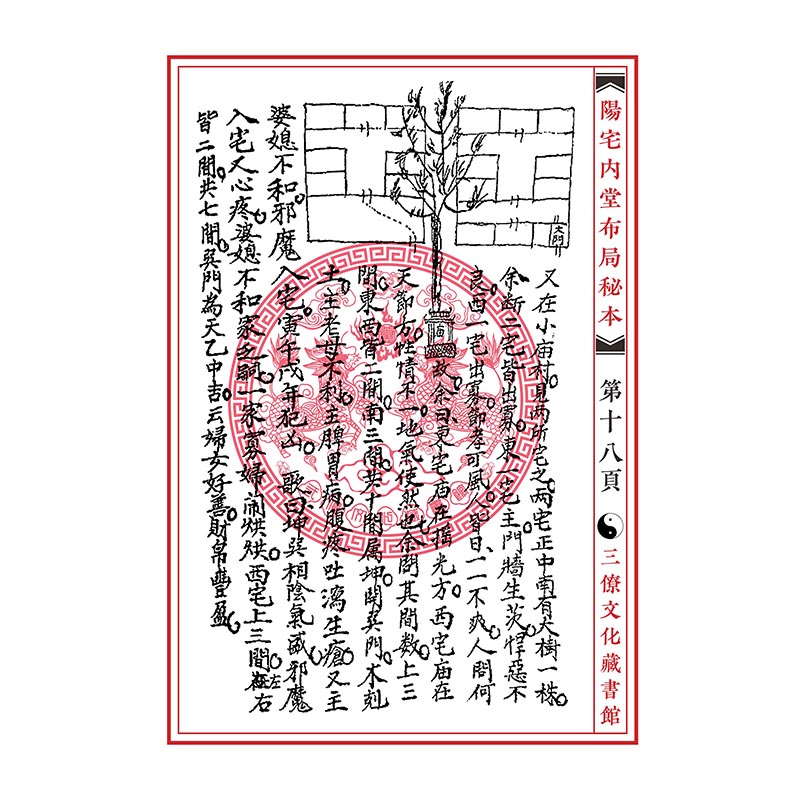 《陽宅内堂布局秘本》 第十八頁 三僚文化藏書館
大門
庙
又在小庙村見两所宅之两宅正中南有大樹一株。
余断二宅皆出寡。東一宅主門牆生茨悍惡不
良。西一宅出寡節孝可風人皆曰一一不爽。人問何
故余曰東宅庙在搖光方。西宅庙在
天節方。性情不一。地氣使然也余閱其間數。上三
間東西皆二間。南三間。共十間属坤。開巽門。木剋
土。主老母不利。主脾胃病。腹疼吐瀉生瘡。又主
婆媳不和。邪魔入宅。寅午戌年犯凶。歌曰。坤巽相陰氣盛。邪魔
入宅又心疼。婆媳不和家乏嗣。一家寡婦鬧烘烘。西宅上三間。左右
皆二間。共七間。巽門為天乙中吉。云婦女好善。財帛豐盈。